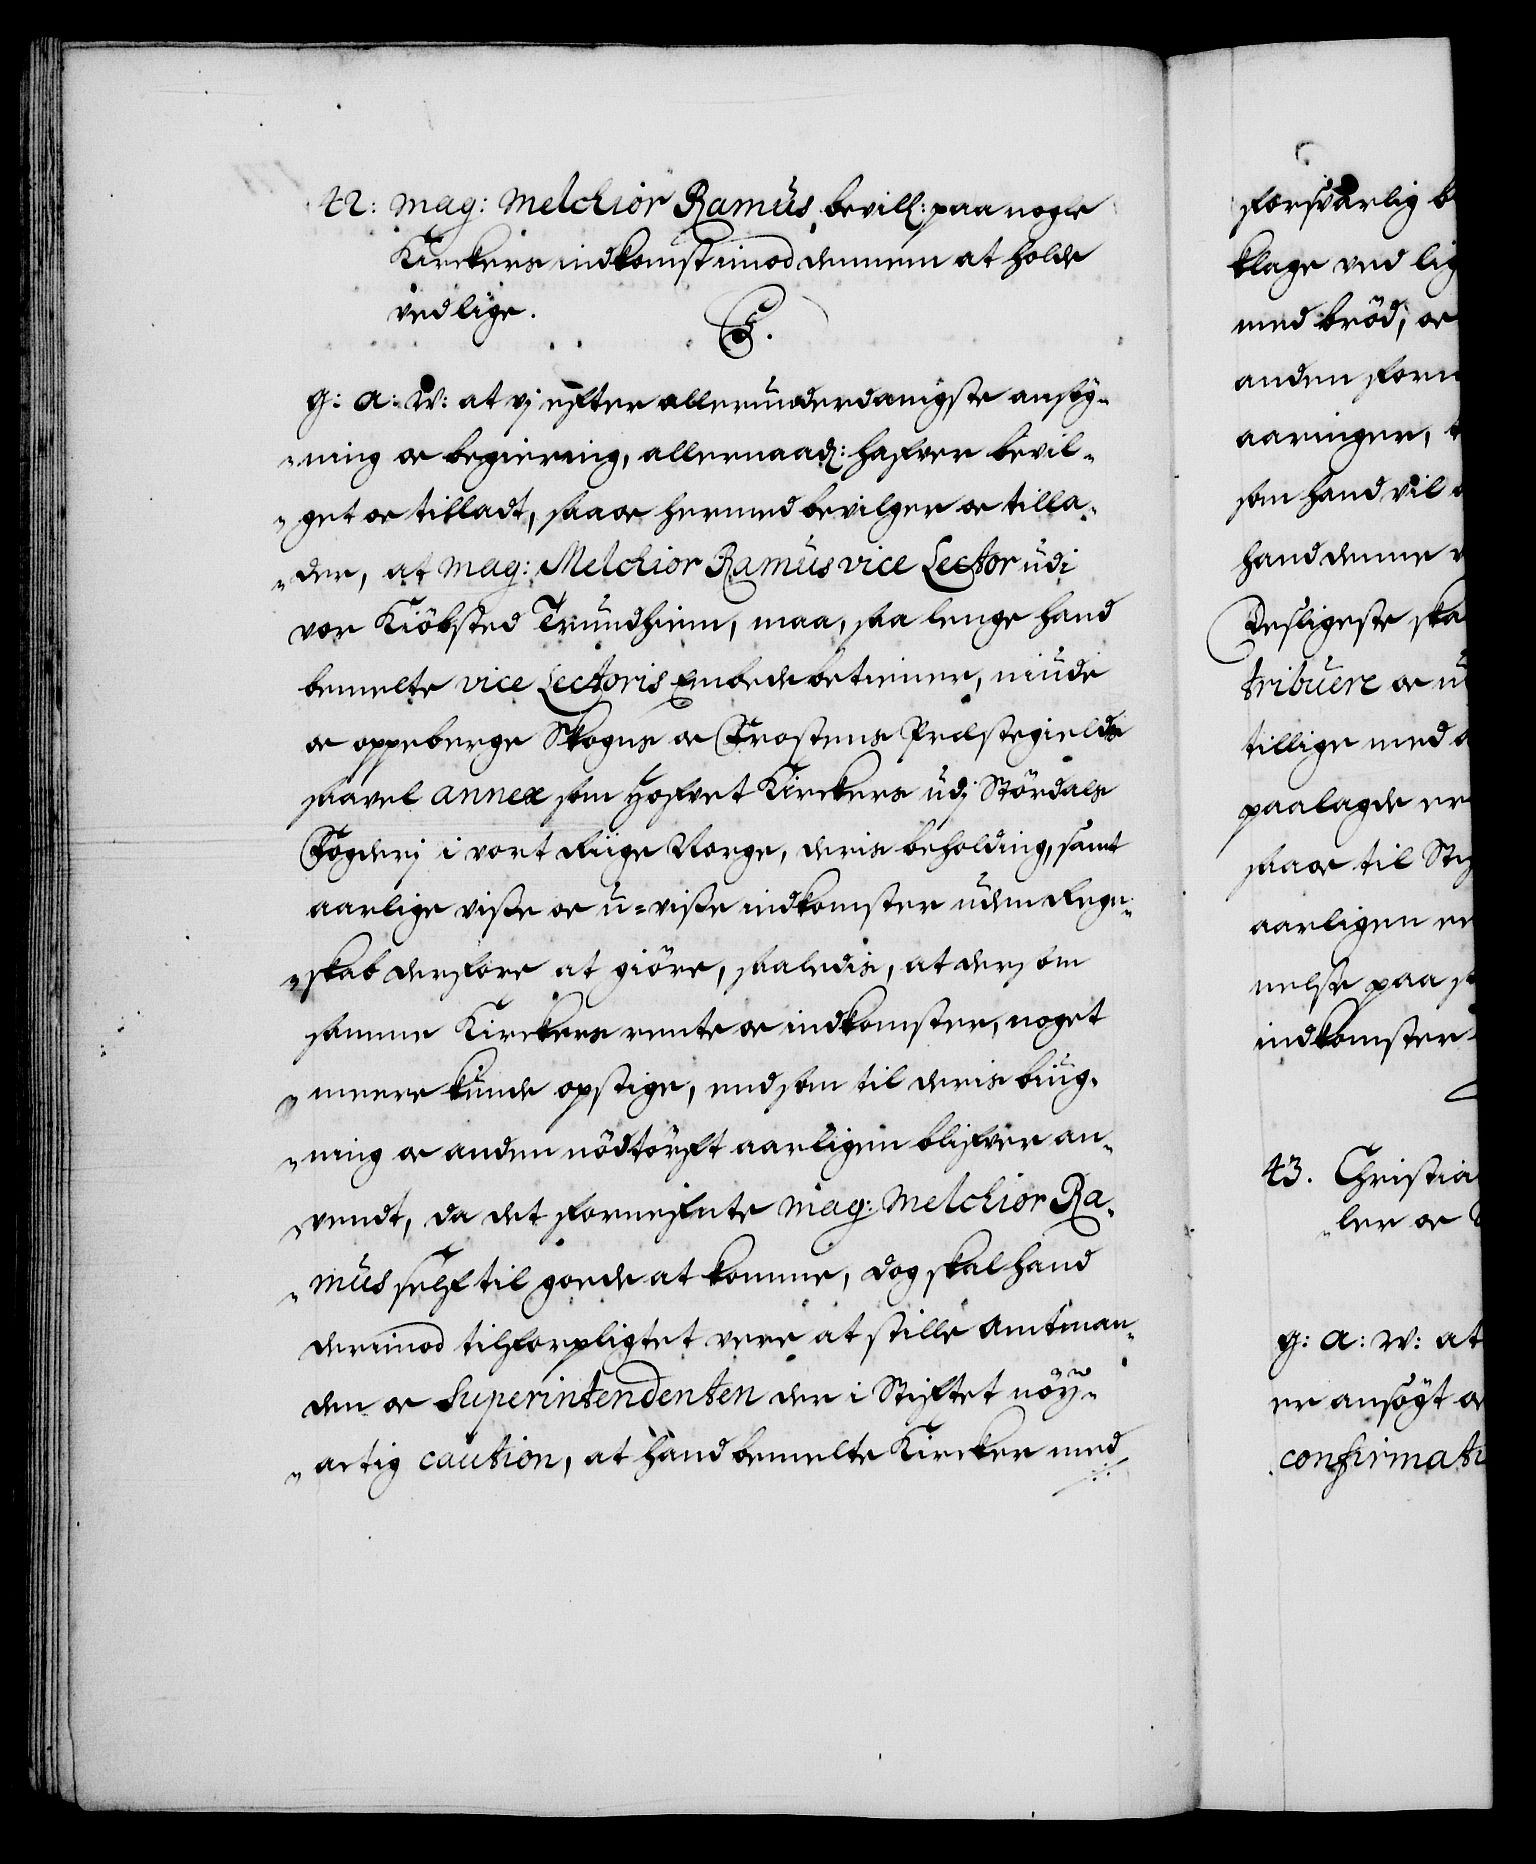 42: Mag: Melchior Ramus, bevill: paa nogle
Kirckers indkomst imod dennem at holde
ved lige.
C5.
G: A: W: at vj efter allerunderdanigste ansøg-
ning oc begiering, allernaad: hafver bevil-
get oc tilladt, saa oc hermed bevilger oc tilla-
der, at Mag: Melchior Ramus vice Lector udi
vor Kiöbsted Trundhiem, maa, saa lenge hand
bemelte vice Lectoris Embede betiener, niude
oc oppeberge Skogns oc Frostens Præstegields
saavel annex som Hofvet Kirckers udj Stördals
Fogderj i vort Riige Norge, deris beholding, samt
aarlige visse oc u-visse indkomster uden Regn-
skab derfore at giöre, saaledis, at dersom
samme Kirckers rente oc indkomster, noget
meere kunde opstige, end som til deris biug-
ning oc anden nödtörft aarligen blifver an-
vendt, da det fornefnte Mag: Melchior Ra-
mus self til goede at komme, dog skal hand
derimod tilforpligtet vere at stille Amtman-
den oc Superintendenten der i Stiftet nöy-
actig caution, at hand bemelte Kircker med
forsvarlig b
klage ved lig
med bröd, oc
anden forn
aaringer, t
som hand vil
hand denne
Desligeste ska
tribuere oc u
tillige med
paalagde er
saa oc til Sti
aarligen er
nelse paa
indkomster
43. Christia
ler oc
G: A: W: at
er ansögt oc
confirmati